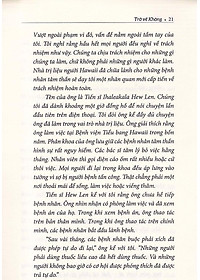 Trở về Không • 21
Vượt ngoài phạm vi đó, vấn đề nằm ngoài tầm tay của
tôi. Tôi nghĩ rằng hầu hết mọi người đều nghĩ về trách
nhiệm như vậy. Chúng ta chịu trách nhiệm cho những gì
chúng ta làm, chứ không phải những gì người khác làm.
Nhà trị liệu người Hawaii đã chữa lành cho những bệnh
nhân tâm thần sẽ dạy tôi một nhãn quan mới cấp tiến về
trách nhiệm hoàn toàn.
Tên của ông là Tiến sĩ Ihaleakala Hew Len. Chúng
tôi đã dành khoảng một giờ đồng hồ để nói chuyện lần
đầu tiên trên điện thoại. Tôi đòi ông kể đầy đủ chuyện
ông đã làm trong vai trò nhà trị liệu. Ông giải thích rằng
ông làm việc tại Bệnh viện Tiểu bang Hawaii trong bốn
năm. Phân khoa của ông lưu giữ các bệnh nhân tâm thần
hình sự rất nguy hiểm. Các bác sĩ tâm lý bỏ việc hàng
tháng. Nhân viên thì gọi điện cáo ốm rất nhiều hoặc cứ
thôi việc. Mọi người đi lại trong khoa đều áp lưng vào
tường vì sợ bị người bệnh tấn công. Thật chẳng phải một
nơi thoải mái để sống, làm việc hoặc viếng thăm.
Tiến sĩ Hew Len kể với tôi rằng ông chưa hề tiếp
bệnh nhân. Ông nhìn nhận có phòng làm việc và đã xem
bệnh án của họ. Trong khi xem bệnh án, ông thao tác
trên bản thân mình. Trong khi ông thao tác trên chính
mình, các bệnh nhân bắt đầu lành bệnh.
"Sau vài tháng, các bệnh nhân buộc phải xích đã
được phép tự do đi lại", ông kể với tôi. "Những người
phải dùng thuốc liều cao đã hết dùng thuốc. Và những
người không bao giờ có cơ hội được phóng thích đã được
trả tự do".